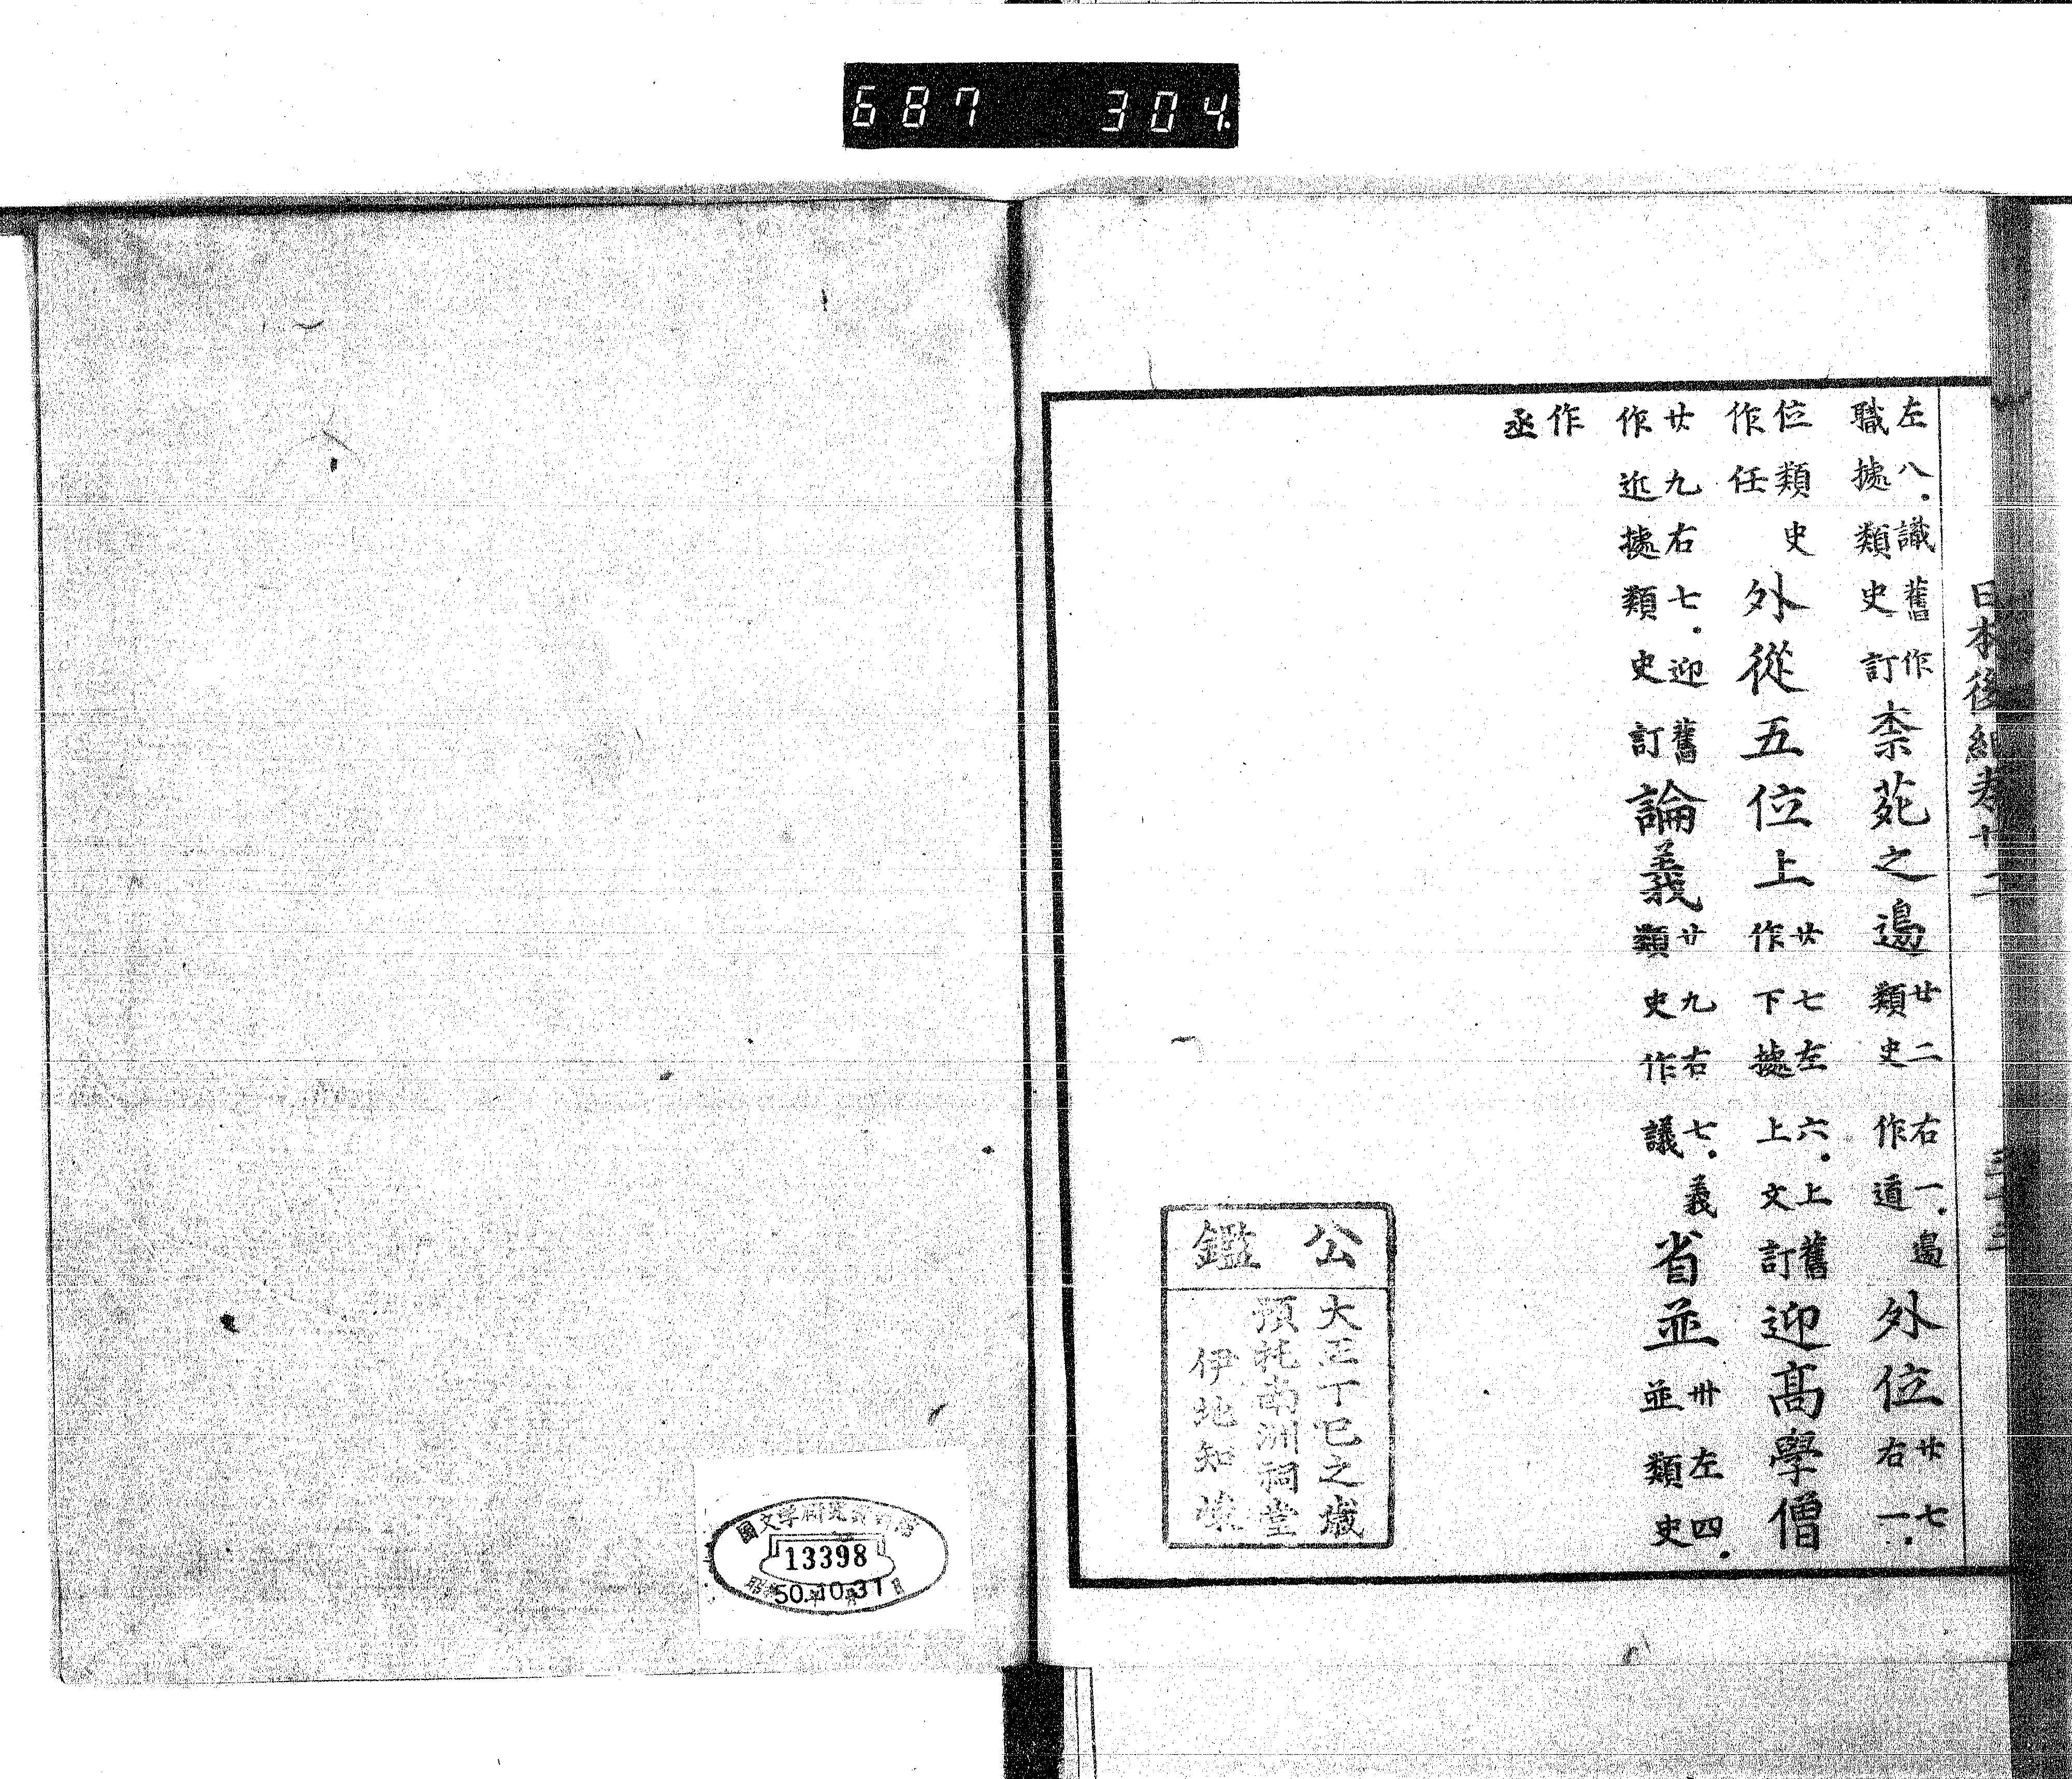 687 304
日本後紀卷廿二
左八．識舊作
職據類史訂
柰苑之邉
廿二右一．邉
類史作道
外位
廿七
右一．
位類史
作任
外從五位上
廿七左六．上舊
作下據上文訂
迎髙學僧
廿九右七．迎舊
作近據類史訂
論義
廿九右七．義
類史作議
省並
卅左四．
並類史
作
丞
公鑑
大正丁巳之歳
預托南洲祠堂
伊地知
13398
50.10.31